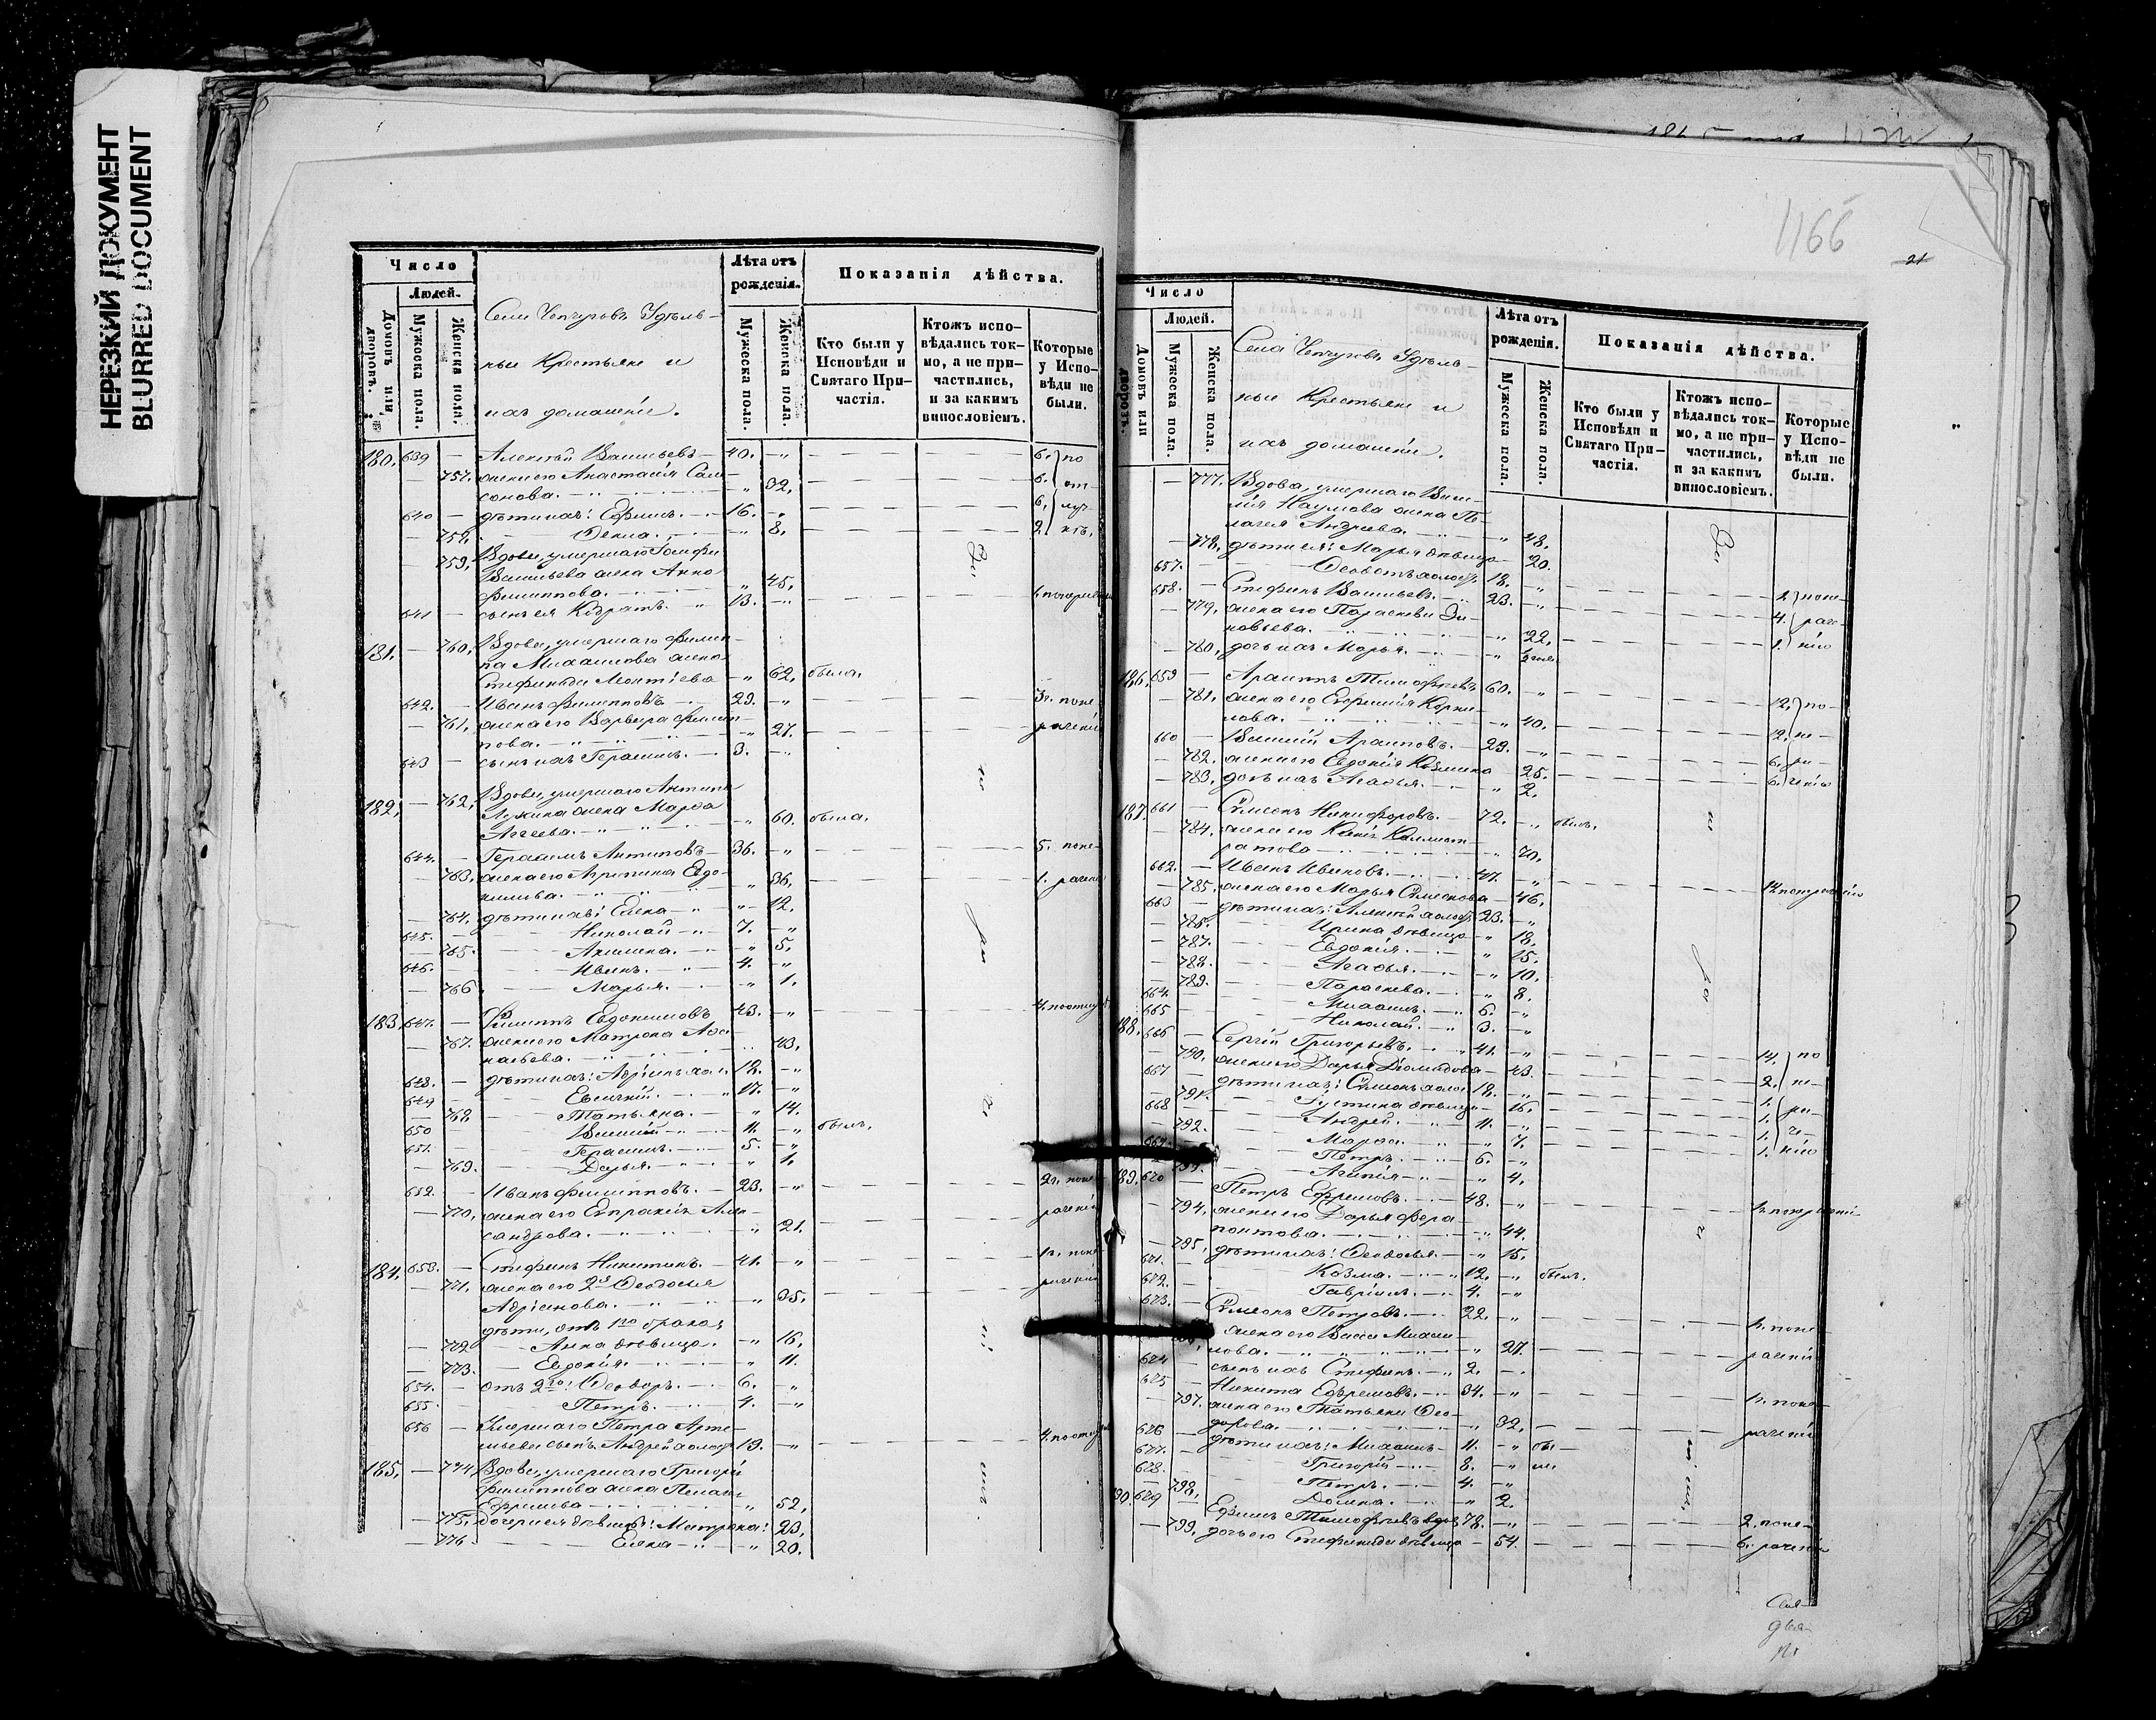 НЕРЕЗКИЙ ДОКУМЕНТ
BLURRED DOCUMENT
Число
Людей.
Домовъ или дворовъ.
Мужеска пола.
Женска пола.
Лѣта отъ рожденія.
Мужеска пола.
Женска пола.
Показанія дѣйства.
Кто были у Исповѣди и Святаго Причастія.
Ктожъ исповѣдались токмо, а не причастились, и за какимъ винословіемъ.
Которые у Исповѣди не были.
Села Чепчуговъ Удѣль-
ные Крестьяне и
ихъ домашніе.
180. 639 — Алексѣй Васильевъ — 40. 6.
757. жена его Анастасія Сам-
сонова. 32. 6.
640 — дѣти ихъ: Ефимъ. 16. 6.
758. Фекла. 8. 2.
759. Вдова, умершаго
Васильева жена Анна
Филиппова. 45.
641 — сынъ ея Кодратъ. 13.
181. — 760. Вдова, умершаго Филип-
па Михаилова жена
Стефанида Леонтіева 62. была.
642. — Иванъ Филипповъ 29. 3. по не-
761. жена его Варвара Филип-
пова. 27. раченію
643 — сынъ ихъ Герасимъ. 3.
182. — 762. Вдова, умершаго Антипа
Лукина жена Марѳа
Аггеева. 60. была.
644. — Герасимъ Антиповъ 36. 5. по не-
763. жена его Агрипина Евдо-
кимова. 36. 1. раченію
764. дѣти ихъ: Елена 12.
645. — Николай 7.
765. Акилина. 5.
646. — Иванъ. 4.
766 Марья. 1.
183. 647. — Филиппъ Евдокимовъ 43. 4. по отлуч
767. жена его Матрона Аѳа-
насьева. 43.
648. — дѣти ихъ: Адріанъ хол. 12.
649 Евсигній. 17.
768 Татьяна. 14.
650 Василій 11. былъ.
651. Герасимъ. 5.
769. Дарья. 1.
652. — Иванъ Филипповъ. 23. 2. по не-
770. жена его Евпраксія Алек-
сандрова. 21. раченію
184. 653. — Стефанъ Никитинъ. 41. 1. по не-
771. жена его 2я Ѳеодосья
Адріанова. 35. раченію
дѣти, отъ 1го брака:
772 Анна дѣвица. 16.
773. Евдокія. 11.
654. — отъ 2го: Ѳеодоръ. 6.
655 — Петръ. 4.
656 — Умершаго Петра Арте-
мьева сынъ Андрей холост 19. 4. по отлуч
185. — 774. Вдова, умершаго Григорія
Филиппова жена Пелагія
Ефремова 52.
775. дочери ея дѣвицы: Матрона: 23.
776. Елена 20.
Зи
но
1166
21
Число
Людей.
Домовъ или дворовъ.
Мужеска пола.
Женска пола.
Лѣта отъ рожденія.
Мужеска пола.
Женска пола.
Показанія дѣйства.
Кто были у Исповѣди и Святаго Причастія.
Ктожъ исповѣдались токмо, а не причастились, и за какимъ винословіемъ.
Которые у Исповѣди не были.
Села Чепчуговъ Удѣль-
ные Крестьяне и
ихъ домашніе.
— 777. Вдова, умершаго Васи-
лія Наумова жена Пе-
лагея Андреева. 48.
778. дѣти ея: Марья дѣвица 20.
657. Ѳеодотъ холост. 18.
658. — Стефанъ Васильевъ. 23. 2. по не-
779. жена его Параскева Зи-
новьева. 22. 4. раче-
780. дочь ихъ Марья. 1. нію
186. 659 — Архиппъ Тимофѣевъ 60. 12. по
781. жена его Евфимія Корни-
лова. 40. 12. не-
660 — Василій Архиповъ. 29. 6. ра-
782. жена его Евдокія Козмина 25. 6. ченію
783. дочь ихъ Агафья. 2.
187. 661 — Симеонъ Никифоровъ. 72. былъ.
784. жена его Ксенія Каллист-
ратова 70.
662. — Иванъ Ивановъ. 47. 14. по нераченію
785. жена его Марья Симеонова 46.
663 дѣти ихъ: Алексѣй холост. 23.
786. Ирина дѣвица 18.
787. Евдокія. 15.
788. Агафья. 10.
789. Параскева. 8.
664. Михаилъ. 6.
665 Николай. 3.
188. 666 — Сергій Григорьевъ. 41. 14. по
790. жена его Дарья Діомидова 43. 2. не-
667 дѣти ихъ: Симеонъ холос 18. 1. ра-
791. Іустина дѣвица 16. 1.
668 Андрей. 11. 1. че-
792. Марѳа. 7. 1. нію
669. Петръ. 6.
793. Агапія 4.
189. 670 — Петръ Ефремовъ. 48. по нераченію
794. жена его Дарья Ѳера-
понтова. 44.
795. дѣти ихъ: Ѳеодосья. 15.
671. Козма. 12. былъ.
672. Гавріилъ. 4.
673. — Симеонъ Петровъ. 22. 1. по не-
жена его Васса Михаи-
лова. 27. раченію
674 сынъ ихъ Стефанъ. 2.
675 — Никита Ефремовъ. 34. 1. по не-
797. жена его Татьяна Ѳео-
дорова. 32. раченію
676 дѣти ихъ: Михаилъ 11. бы-
677. Григорій 8. ли
678. Петръ. 4.
798. Домна. 2.
190. 679 — Ефимъ Тимофѣевъ вдов 78. 2. по не-
799. дочь его Стефанида дѣвица 54. 6. раченію